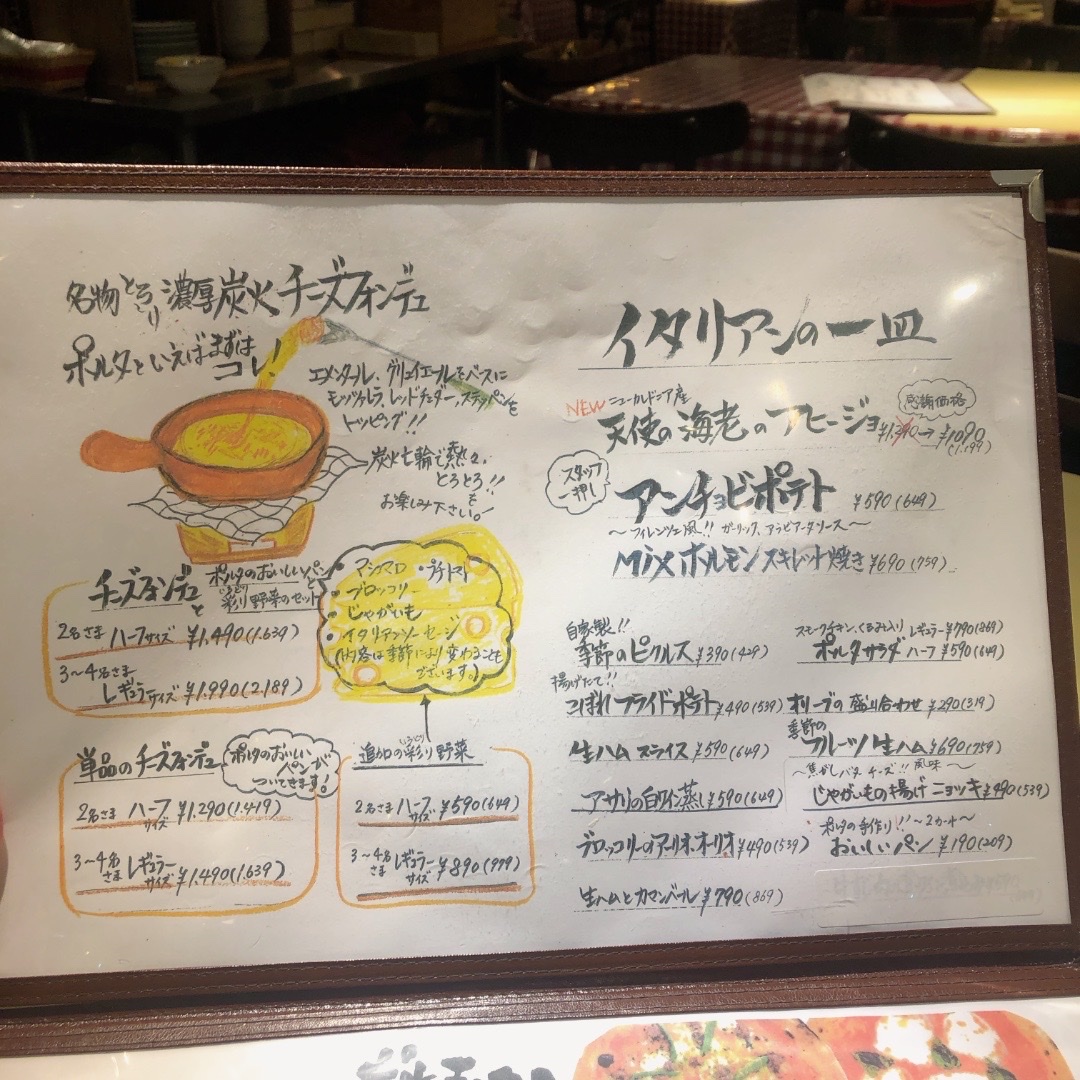 名物とろ〜り濃厚炭火チーズフォンデュ
ポルタといえばまずは
コレ!
エメンタール、グリュイエールをベースに
モッツァレラ、レッドチェダー、ステッペンを
トッピング!!
炭火七輪で熱々
とろとろ!!を
お楽しみ下さい。
チーズフォンデュと
ポルタのおいしいパンと
彩り野菜のセット
いろどり
2名さま ハーフサイズ ¥1.490(1.639)
3〜4名さま
レギュラーサイズ ¥1.990(2.189)
・マシュマロ ・プチトマト
・ブロッコリー
・じゃがいも
・イタリアンソーセージ
(内容は季節により変わることも
ございます。)
単品のチーズフォンデュ
ポルタのおいしい
パンが
ついてきます!
2名さま ハーフサイズ ¥1.290(1.419)
3〜4名さま レギュラーサイズ ¥1.490(1.639)
追加の彩り野菜
いろどり
2名さま ハーフサイズ ¥590(649)
3〜4名さま レギュラーサイズ ¥890(979)
イタリアンの一皿
NEW ニューカレドニア産
感謝価格
天使の海老のアヒージョ ¥1,290→¥1090
(1.199)
スタッフ
一押し
アンチョビポテト ¥590(649)
〜フィレンツェ風!! ガーリック、アラビアータソース〜
Mixホルモンスキレット焼き ¥690(759)
自家製!!
季節のピクルス ¥390(429)
揚げたて!!
こぼれフライドポテト ¥490(539)
生ハム スライス ¥590(649)
アサリの白ワイン蒸し ¥590(649)
ブロッコリーのアーリオ・オーリオ ¥490(539)
生ハムとカマンベール ¥790(869)
スモークチキン、くるみ入り レギュラー ¥790(869)
ポルタサラダ ハーフ ¥590(649)
オリーブの盛り合わせ ¥290(319)
季節の
フルーツ生ハム ¥690(759)
〜焦がしバターチーズ!!風味〜
じゃがいもの揚げニョッキ ¥490(539)
ポルタの手作り!!〜2カット〜
おいしいパン ¥190(209)